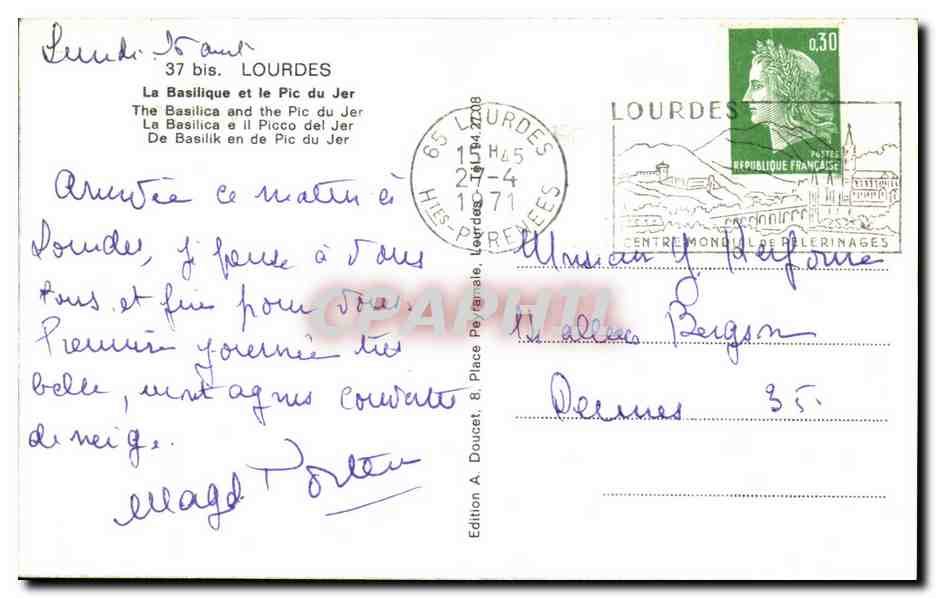 Lundi
37 bis. LOURDES
La Basilique et le Pic du Jer
The Basilica and the Pic du Jer
La Basilica e il Picco del Jer
De Basilik en de Pic du Jer
Arrivée ce matin à
Lourdes, je pense à Vous
tous et prie pour Vous.
Première journée très
belle, montagnes couvertes
de neige.
Magd
Edition A. Doucet, 8, Place Peyramale, Lourdes Tél. 94.27.08
65 LOURDES
H45
-4
1971
HTES-PYRENEES
0,30
POSTES
REPUBLIQUE FRANÇAISE
LOURDES
CENTRE MONDIAL DE PELERINAGES
Monsieur Y.
allée Bergson
Rennes 35.
CPAPHIL